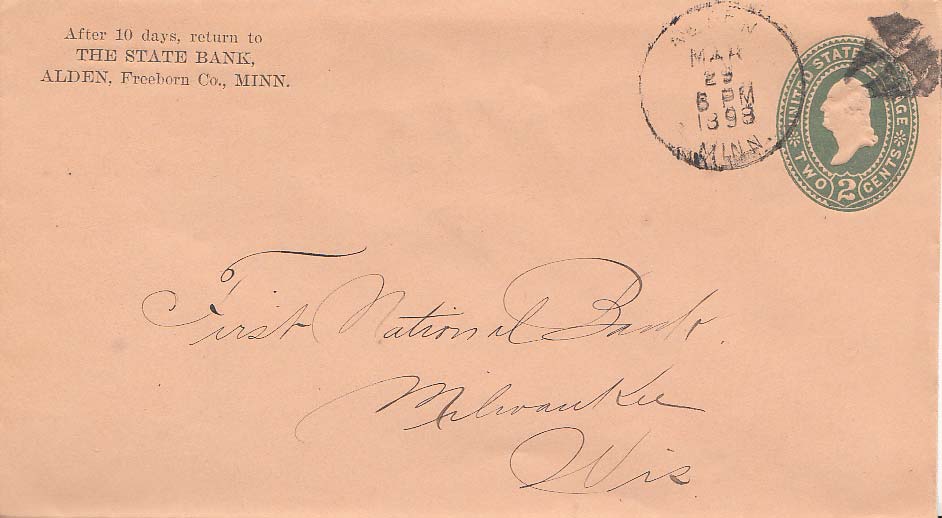 After 10 days, return to
THE STATE BANK,
ALDEN, Freeborn Co., MINN.
ALDEN
MAR
29
6 PM
1898
MINN.
UNITED STATES POSTAGE
TWO 2 CENTS
First National Bank.
Milwaukee
Wis